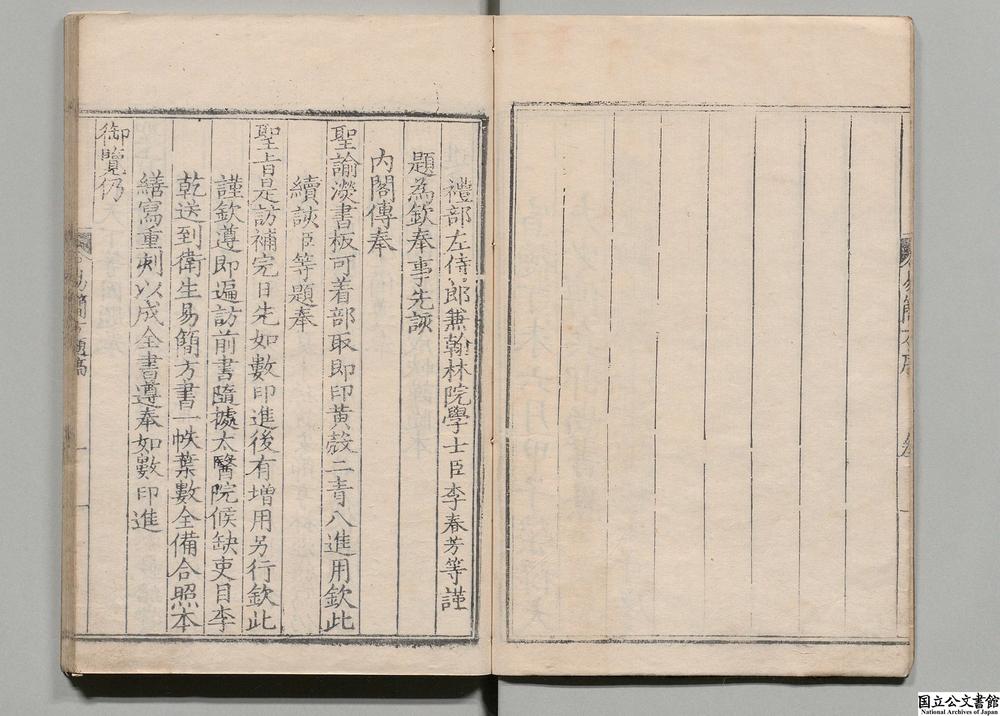 禮部左侍郎兼翰林院學士臣李春芳等謹
題為欽奉事先該
內閣傳奉
聖諭𣸣書板可着部取即印黃殼二青八進用欽此
續該臣等題奉
聖旨是訪補完日先如數印進後有增用另行欽此
謹欽遵即遍訪前書隨據太醫院候缺吏目李
乾送到衛生易簡方書一帙葉數全備合照本
繕寫重刻以成全書遵奉如數印進
御覽仍
易簡方題稿
一
国立公文書館
National Archives of Japan